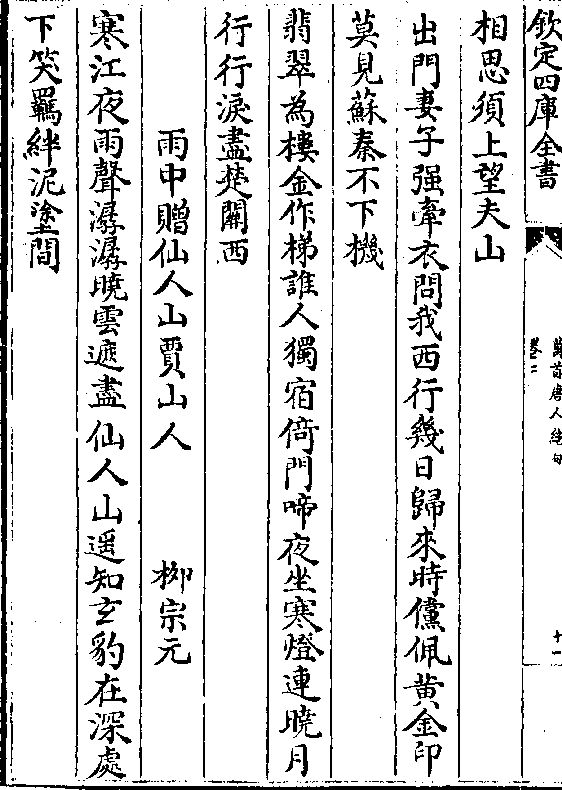 欽定四庫全書
萬首唐人絶句
卷二
十一
相思須上望夫山
出門妻子强牽衣問我西行幾日歸來時儻佩黄金印
莫見蘇秦不下機
翡翠為樓金作梯誰人獨宿倚門啼夜坐寒燈連曉月
行行淚盡楚關西
雨中贈仙人山賈山人
柳宗元
寒江夜雨聲潺潺曉雲遮盡仙人山遥知玄豹在深處
下笑羈絆泥塗間